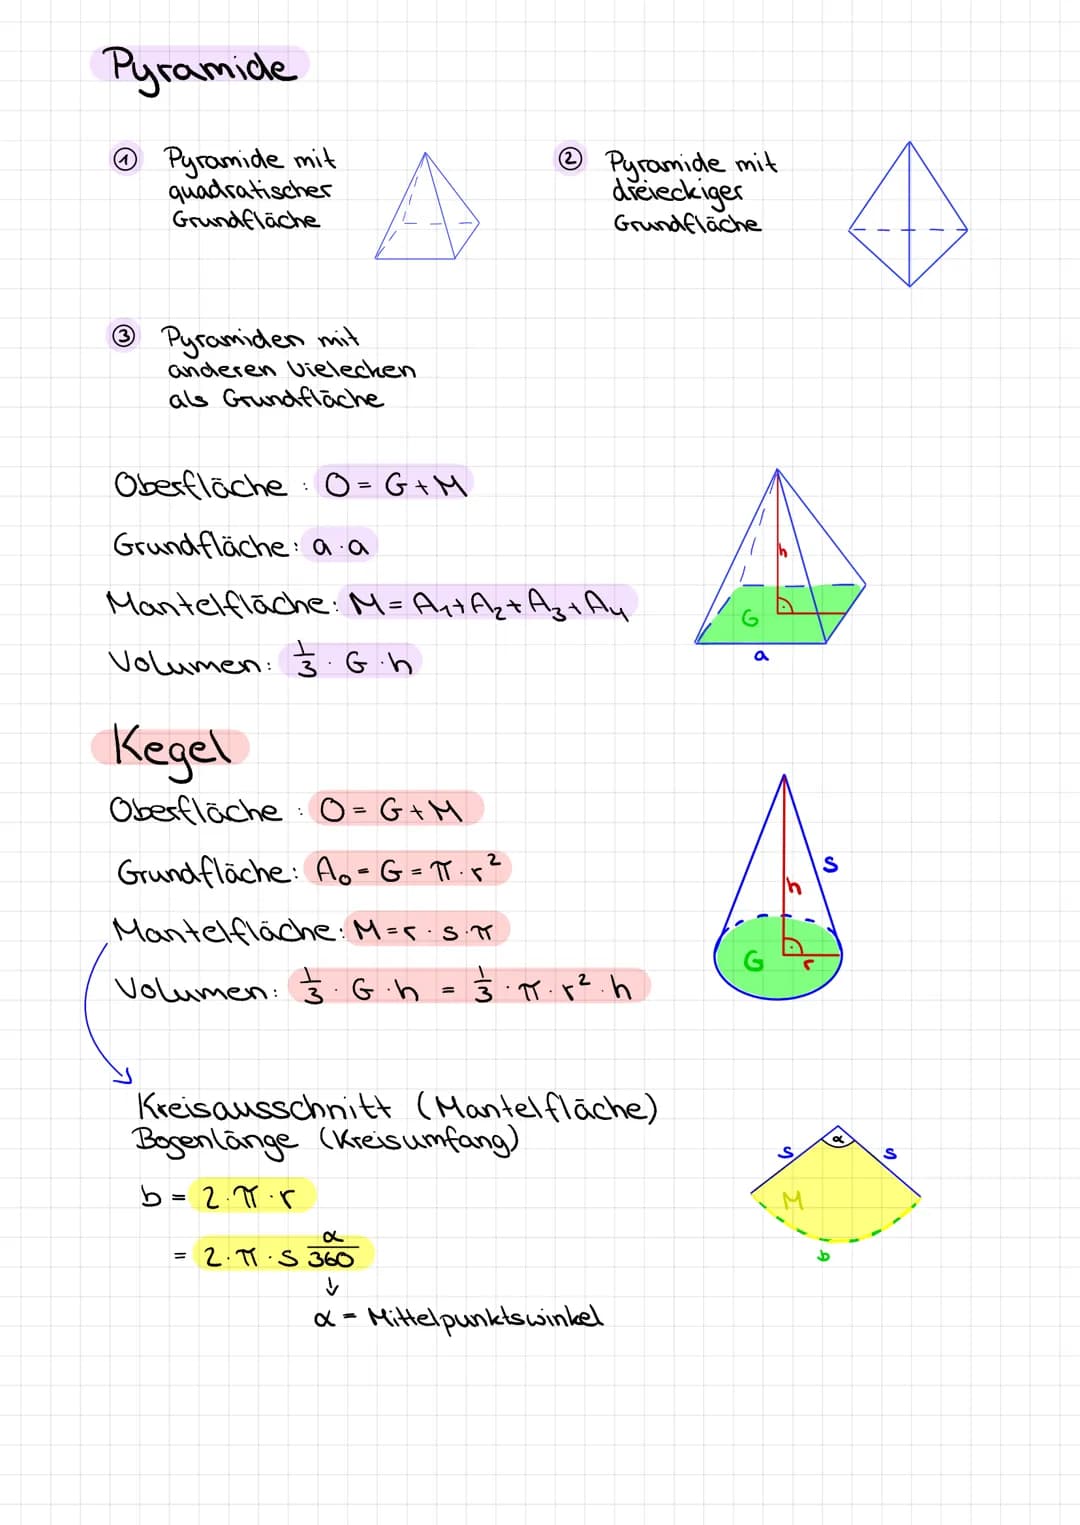 Pyramide
① Pyramide mit
quadratischer
Grundfläche
② Pyramide mit
dreieckiger
Grundfläche
③ Pyramiden mit
anderen Vielecken
als Grundfläche
Oberfläche : O = G + M
Grundfläche: a · a
Mantelfläche: M = A₁ + A₂ + A₃ + A₄
Volumen: 1/3 · G · h
h
G
a
Kegel
Oberfläche : O = G + M
Grundfläche: A₀ = G = π · r²
Mantelfläche: M = r · s · π
Volumen: 1/3 · G · h = 1/3 · π · r² · h
s
h
G
r
Kreisausschnitt (Mantelfläche)
Bogenlänge (Kreisumfang)
b = 2 · π · r
= 2 · π · s α/360
↓
α = Mittelpunktswinkel
α
s
s
M
b